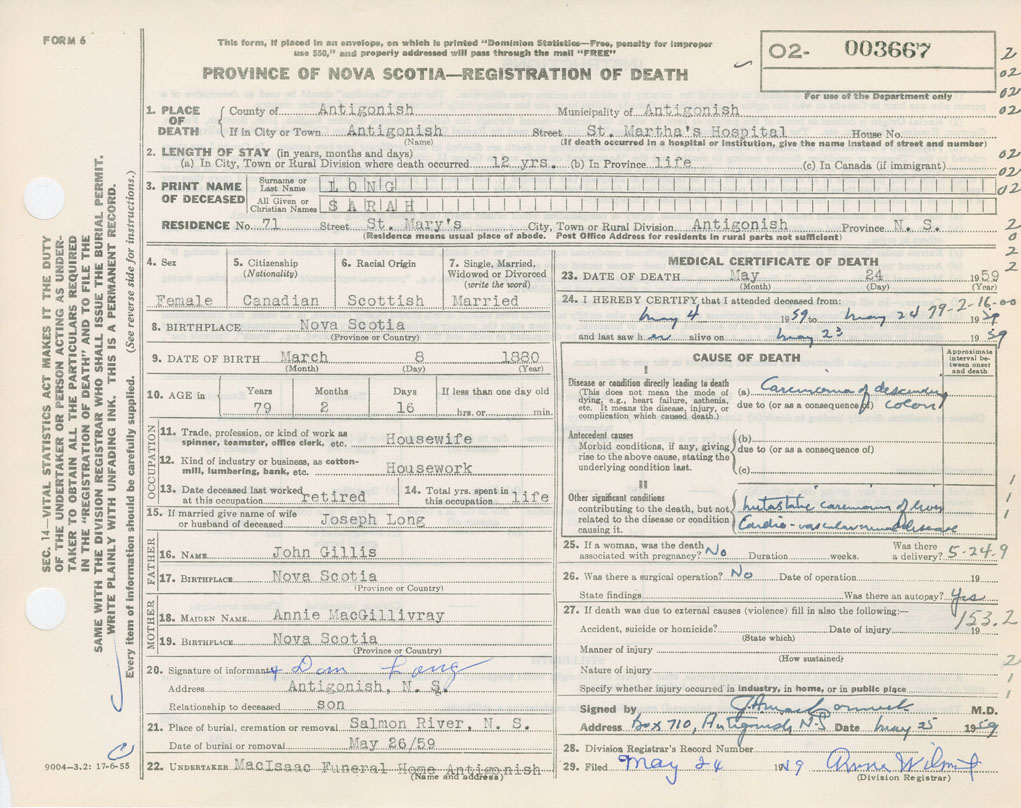 FORM 6
This form, if placed in an envelope, on which is printed "Dominion Statistics—Free, penalty for improper
use $50," and properly addressed will pass through the mail "FREE"
02- 003667
For use of the Department only
PROVINCE OF NOVA SCOTIA—REGISTRATION OF DEATH
1. PLACE OF DEATH County of Antigonish Municipality of Antigonish
If in City or Town Antigonish Street St. Martha's Hospital House No.
(Name) (If death occurred in a hospital or institution, give the name instead of street and number)
2. LENGTH OF STAY (in years, months and days)
(a) In City, Town or Rural Division where death occurred 12 yrs. (b) In Province life (c) In Canada (if immigrant)
3. PRINT NAME OF DECEASED Surname or Last Name LONG
All Given or Christian Names SARAH
RESIDENCE No. 71 Street St. Mary's City, Town or Rural Division Antigonish Province N. S.
(Residence means usual place of abode. Post Office Address for residents in rural parts not sufficient)
4. Sex Female
5. Citizenship (Nationality) Canadian
6. Racial Origin Scottish
7. Single, Married, Widowed or Divorced (write the word) Married
8. BIRTHPLACE Nova Scotia
(Province or Country)
9. DATE OF BIRTH March 8 1880
(Month) (Day) (Year)
10. AGE in Years 79 Months 2 Days 16 If less than one day old hrs. or min.
OCCUPATION
11. Trade, profession, or kind of work as spinner, teamster, office clerk, etc. Housewife
12. Kind of industry or business, as cotton-mill, lumbering, bank, etc. Housework
13. Date deceased last worked at this occupation retired
14. Total yrs. spent in this occupation life
15. If married give name of wife or husband of deceased Joseph Long
FATHER
16. NAME John Gillis
17. BIRTHPLACE Nova Scotia
(Province or Country)
MOTHER
18. MAIDEN NAME Annie MacGillivray
19. BIRTHPLACE Nova Scotia
(Province or Country)
20. Signature of informant Dan Long
Address Antigonish, N. S.
Relationship to deceased son
21. Place of burial, cremation or removal Salmon River, N. S.
Date of burial or removal May 26/59
22. UNDERTAKER MacIsaac Funeral Home Antigonish
(Name and address)
MEDICAL CERTIFICATE OF DEATH
23. DATE OF DEATH May 24 1959
(Month) (Day) (Year)
24. I HEREBY CERTIFY that I attended deceased from:
May 4 1959 to May 24 1959
79-2-16-00
and last saw her alive on May 23 1959
CAUSE OF DEATH
Approximate interval between onset and death
I
Disease or condition directly leading to death
(This does not mean the mode of dying, e.g., heart failure, asthenia, etc. It means the disease, injury, or complication which caused death.)
(a) Carcinoma of descending
due to (or as a consequence of) colon
Antecedent causes
Morbid conditions, if any, giving rise to the above cause, stating the underlying condition last.
(b)
due to (or as a consequence of)
(c)
II
Other significant conditions
contributing to the death, but not related to the disease or condition causing it.
Metastatic carcinoma of liver
Cardio-vascular disease
25. If a woman, was the death associated with pregnancy? No Duration weeks. Was there a delivery?
5-24.9
26. Was there a surgical operation? No Date of operation 19
State findings Was there an autopsy? Yes
27. If death was due to external causes (violence) fill in also the following:—
153.2
Accident, suicide or homicide? Date of injury 19
(State which)
Manner of injury
(How sustained)
Nature of injury
Specify whether injury occurred in industry, in home, or in public place
Signed by M.D.
Address Box 710, Antigonish N.S Date May 25 1959
28. Division Registrar's Record Number
29. Filed May 24 1959
(Division Registrar)
9004-3.2: 17-6-55
SEC. 14—VITAL STATISTICS ACT MAKES IT THE DUTY
OF THE UNDERTAKER OR PERSON ACTING AS UNDER-
TAKER TO OBTAIN ALL THE PARTICULARS REQUIRED
IN THE "REGISTRATION OF DEATH" AND TO FILE THE
SAME WITH THE DIVISION REGISTRAR WHO SHALL ISSUE THE BURIAL PERMIT.
WRITE PLAINLY WITH UNFADING INK. THIS IS A PERMANENT RECORD.
Every item of information should be carefully supplied. (See reverse side for instructions.)